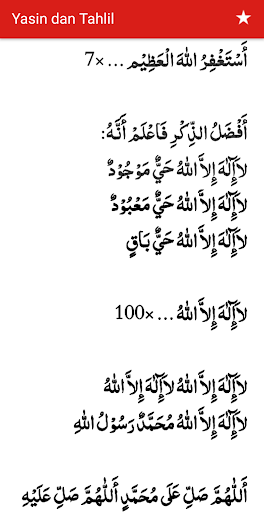 Yasin dan Tahlil ★
أَسْتَغْفِرُ اللهَ الْعَظِيْم ...×7
أَفْضَلُ الذِّكْرِ فَاعْلَمْ أَنَّهُ:
لَاۤإِلٰهَ إِلاَّ اللهُ حَيٌّ مَوْجُوْدٌ
لَاۤإِلٰهَ إِلاَّ اللهُ حَيٌّ مَعْبُوْدٌ
لَاۤإِلٰهَ إِلاَّ اللهُ حَيٌّ بَاقٍ
لَاۤإِلٰهَ إِلاَّ اللهُ ...×100
لَاۤإِلٰهَ إِلاَّ اللهُ لَاۤإِلٰهَ إِلاَّ اللهُ
لَاۤإِلٰهَ إِلاَّ اللهُ مُحَمَّدٌ رَسُوْلُ اللهِ
أَللّٰهُمَّ صَلِّ عَلَى مُحَمَّدٍ أَللّٰهُمَّ صَلِّ عَلَيْهِ